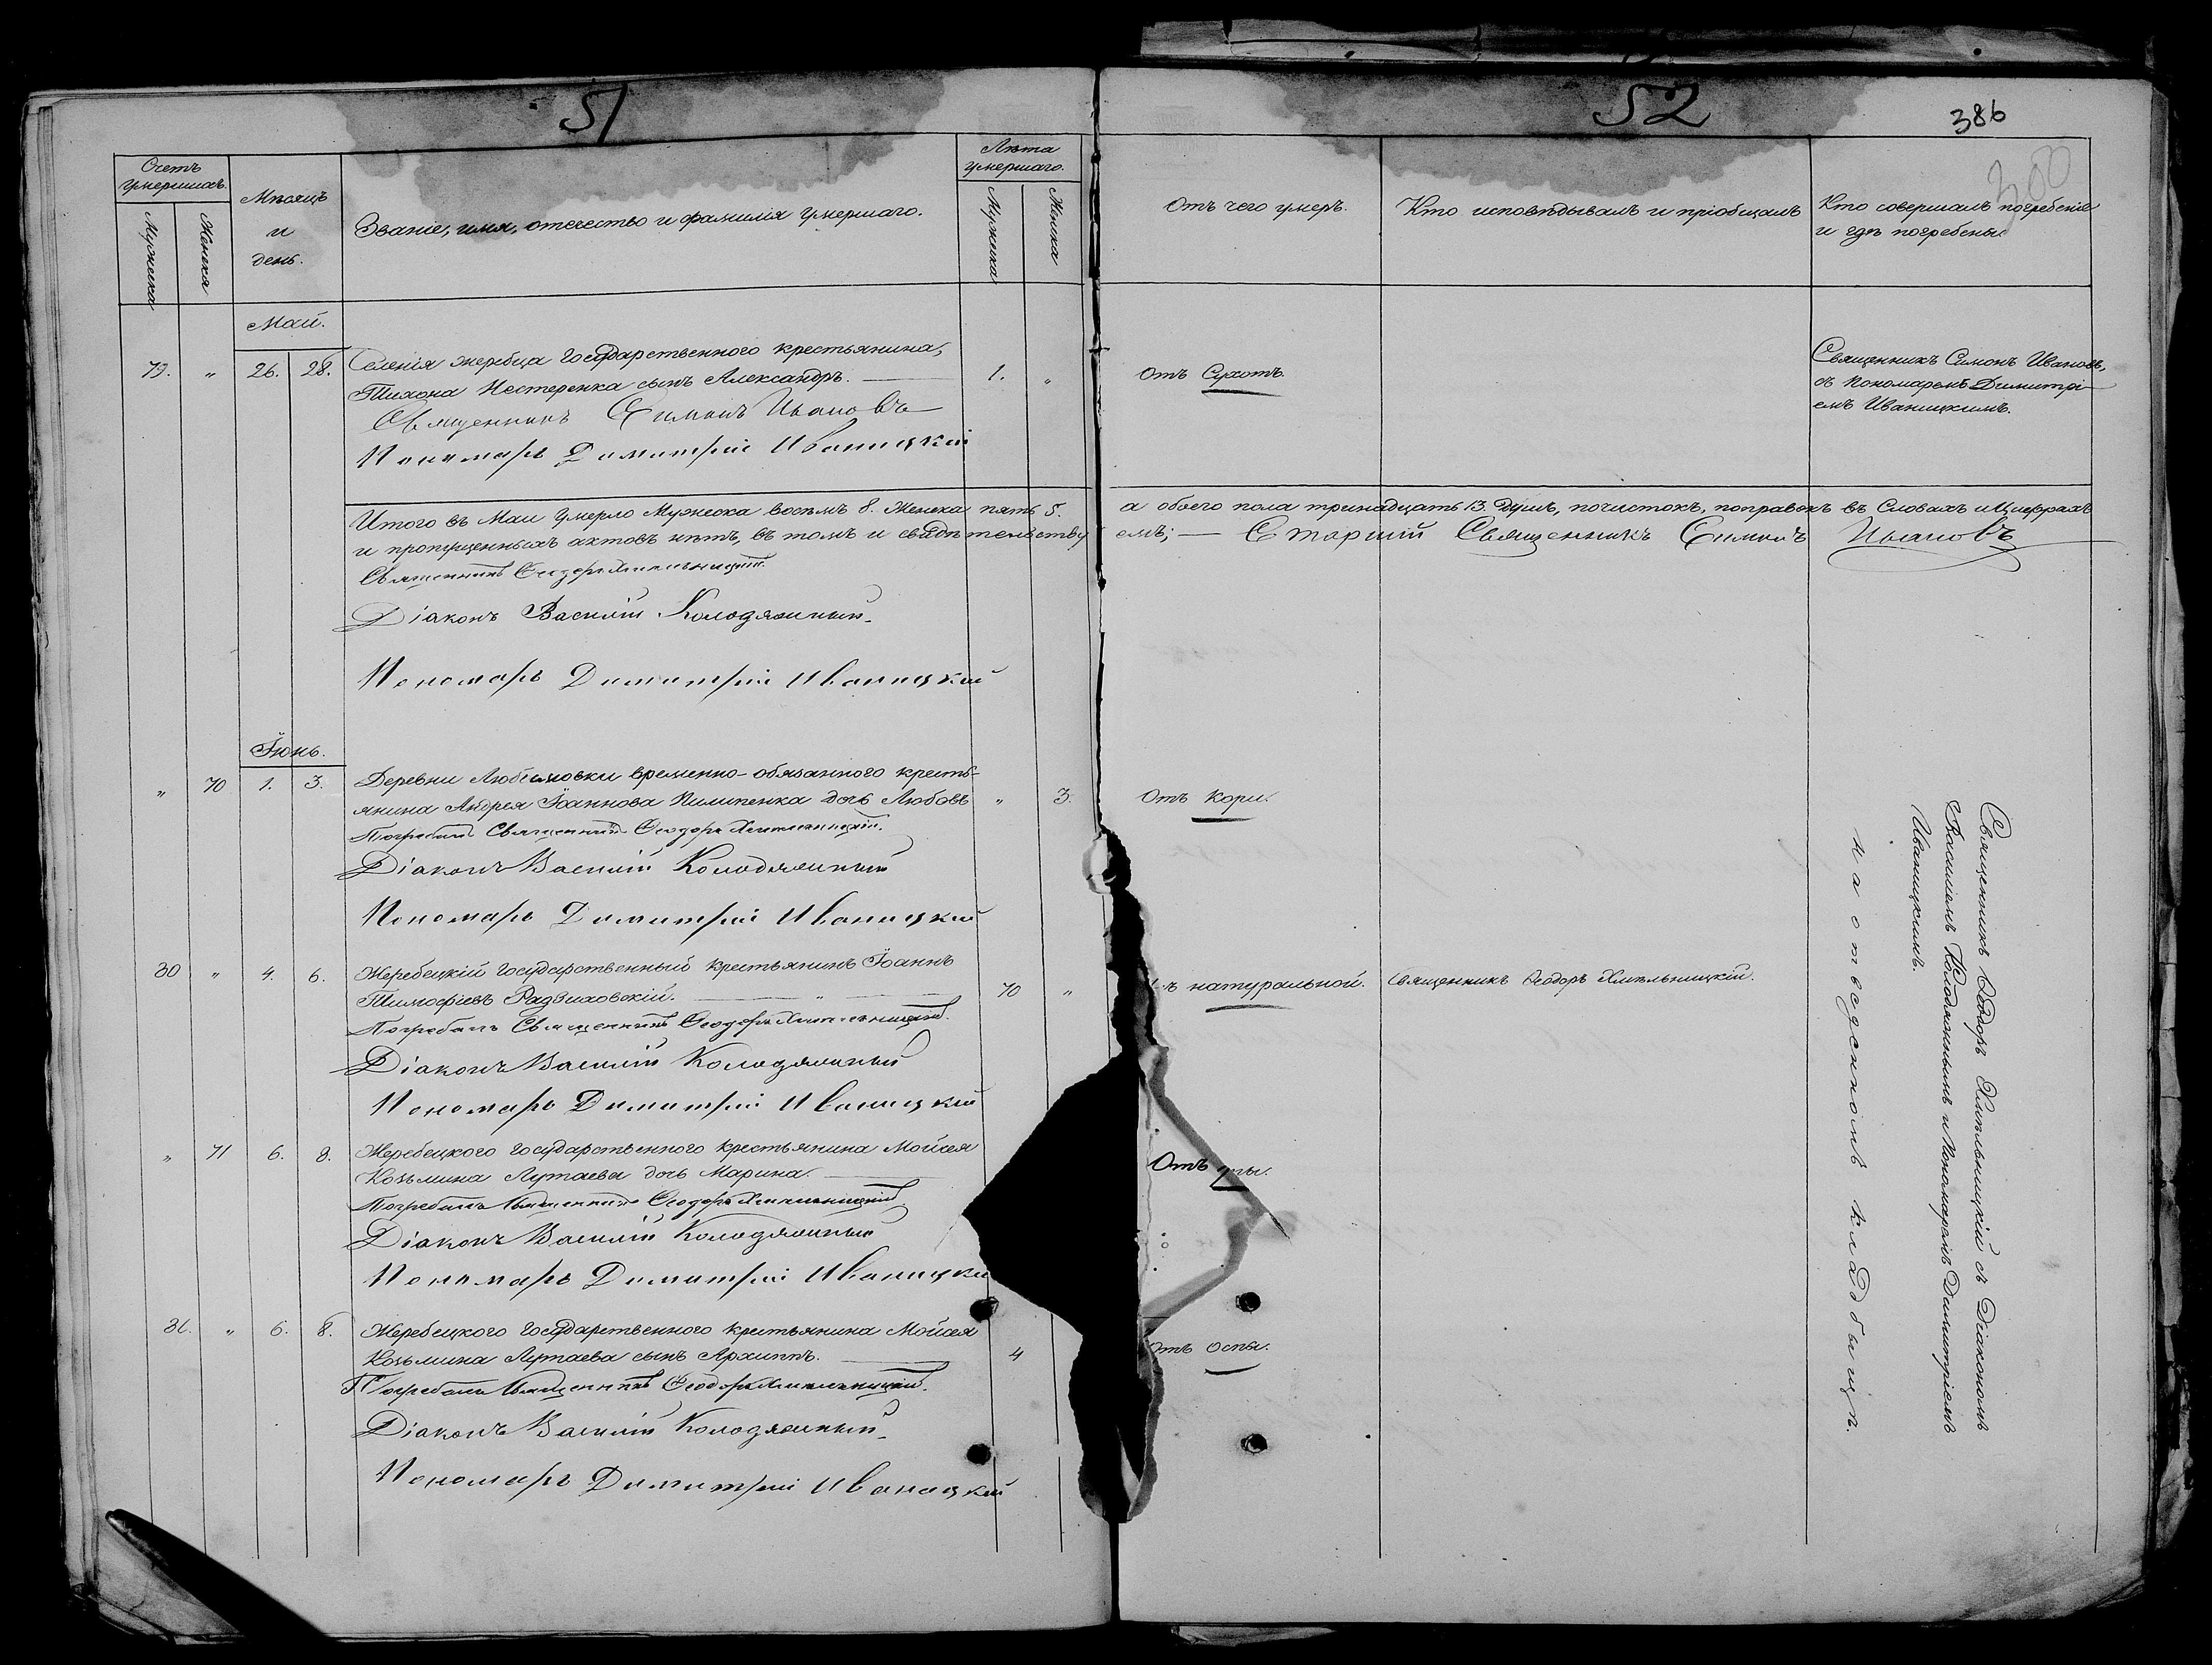 51
Счетъ умершихъ.
Мужеска
Женска
Мѣсяцъ и день.
Званіе, имя, отечество и фамилія умершаго.
Лѣта умершаго.
Мужеска
Женска
Май.
79. " 26. 28. Селенія Жеребца Государственного крестьянина, 1. "
Тихона Нестеренка сынъ Александръ.
Священникъ Симонъ Ивановъ
Пономарь Димитрій Иваницкій
Итого въ Маи умерло Мужеска восемь 8. Женска пять 5.
и пропущенныхъ актовъ нѣтъ, въ томъ и свидѣтельству
Священникъ Ѳеодоръ Хмѣльницкій
Діаконъ Василій Колодяжный
Пономарь Димитрій Иваницкій
Іюнь.
" 70 1. 3. Деревни Любимовки временно-обязанного кресть-
янина Андрея Іоаннова Пилипенка дочь Любовь " 3.
Погребалъ Священникъ Ѳеодоръ Хмѣльницкій.
Діаконъ Василій Колодяжный
Пономарь Димитрій Иваницкій
80 " 4. 6. Жеребецкій Государственный крестьянинъ Іоаннъ
Тимофіевъ Радзиховскій. 70 "
Погребалъ Священникъ Ѳеодоръ Хмѣльницкій.
Діаконъ Василій Колодяжный
Пономарь Димитрій Иваницкій
" 71 6. 8. Жеребецкого Государственного крестьянина Мойсея
Козьмина Лутаева дочь Марина.
Погребалъ Священникъ Ѳеодоръ Хмѣльницкій
Діаконъ Василій Колодяжный
Пономарь Димитрій Иваницкі
81. " 6. 8. Жеребецкого Государственного крестьянина Мойсея
Козьмина Лутаева сынъ Архиппъ. 4
Погребалъ Священникъ Ѳеодоръ Хмѣльницкій.
Діаконъ Василій Колодяжный
Пономарь Димитрій Иваницкій
52
386
300
Отъ чего умеръ.
Кто исповѣдывалъ и пріобщалъ
Кто совершалъ погребеніе
и гдѣ погребены.
Отъ Сухотъ.
Священникъ Симонъ Ивановъ,
съ Пономаремъ Димитрі-
емъ Иваницкимъ.
а обоего пола тринадцать 13. Душъ, почистокъ, поправокъ въ Словахъ и Цыфрахъ
емъ; — Старшій Священникъ Симонъ Ивановъ
Отъ Кори.
ъ натуральной. Священникъ Ѳеодоръ Хмѣльницкій.
Отъ пы.
Отъ Оспы.
Священникъ Ѳеодоръ Хмѣльницкій съ Діакономъ
Василіемъ Колодяжнымъ и Пономаремъ Димитріемъ
Иваницкимъ.
на отведенномъ кладбыщѣ.